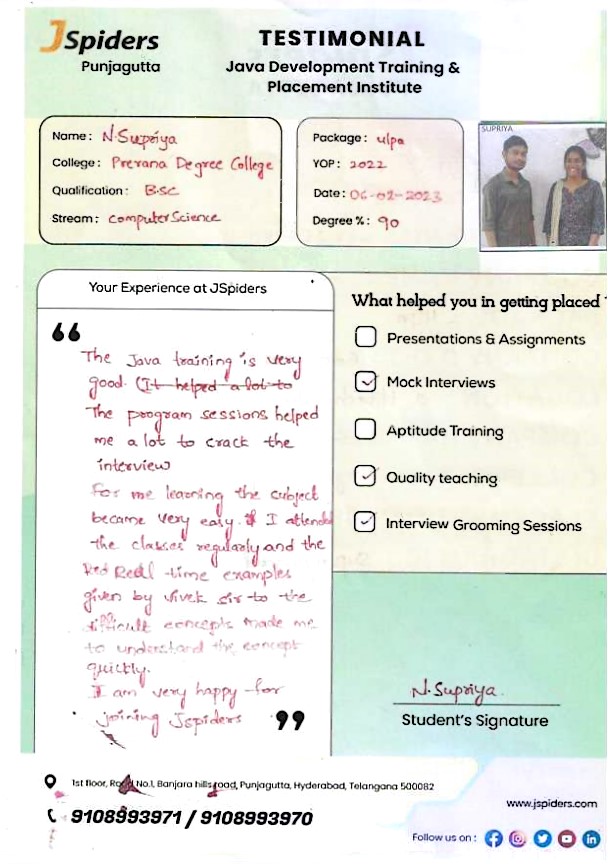 JSpiders
Punjagutta
TESTIMONIAL
Java Development Training &
Placement Institute
Name: N.Supriya
College: Prerana Degree College
Qualification: B.SC
Stream: Computer Science
Package: 4lpa
YOP: 2022
Date: 06-02-2023
Degree %: 90
SUPRIYA
Your Experience at JSpiders
“
The Java training is very
good. (It helped a lot to
The program sessions helped
me a lot to crack the
interview
For me learning the subject
became very easy. I attended
the classes regularly and the
Real time examples
given by Vivek sir to the
difficult concepts made me
to understand the concept
quickly.
I am very happy for
joining Jspiders
”
What helped you in getting placed
Presentations & Assignments
Mock Interviews
Aptitude Training
Quality teaching
Interview Grooming Sessions
N.Supriya
Student's Signature
1st floor, Road No.1, Banjara hills road, Punjagutta, Hyderabad, Telangana 500082
9108993971 / 9108993970
www.jspiders.com
Follow us on :